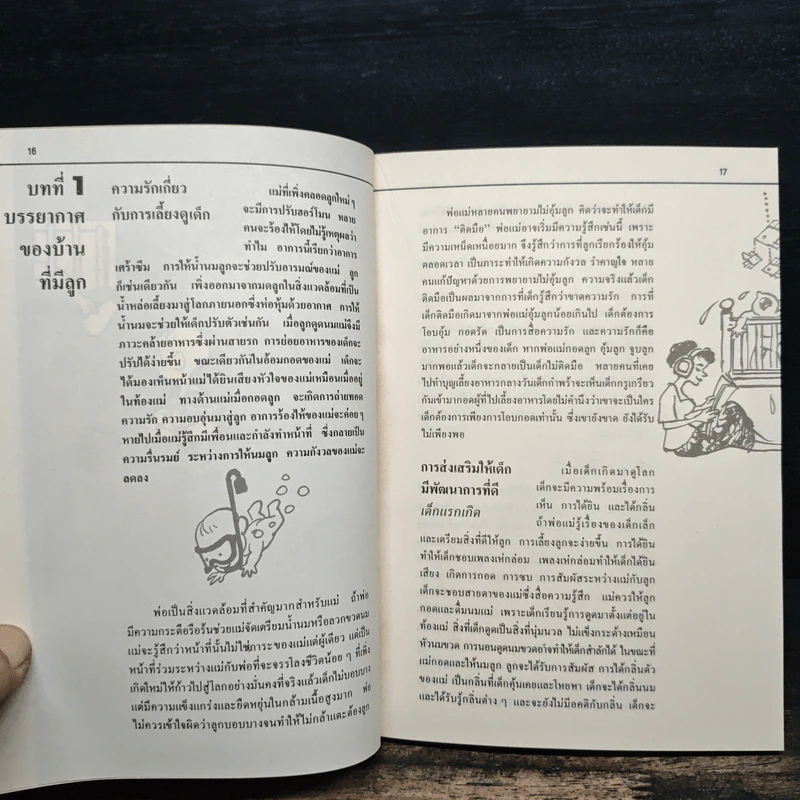 16
บทที่ 1
บรรยากาศ
ของบ้าน
ที่มีลูก
ความรักเกี่ยว
กับการเลี้ยงดูเด็ก
แม่ที่เพิ่งคลอดลูกใหม่ ๆ
จะมีการปรับฮอร์โมน หลาย
คนจะร้องไห้โดยไม่รู้เหตุผลว่า
ทำไม อาการนี้เรียกว่าอาการ
เศร้าซึม การให้น้ำนมลูกจะช่วยปรับอารมณ์ของแม่ ลูก
ก็เช่นเดียวกัน เพิ่งออกมาจากมดลูกในสิ่งแวดล้อมที่เป็น
น้ำหล่อเลี้ยงมาสู่โลกภายนอกซึ่งห่อหุ้มด้วยอากาศ การให้
น้ำนมจะช่วยให้เด็กปรับตัวเช่นกัน เมื่อลูกดูดนมแม่จึงมี
ภาวะคล้ายอาหารซึ่งผ่านสายรก การย่อยอาหารของเด็กจะ
ปรับได้ง่ายขึ้น ขณะเดียวกันในอ้อมกอดของแม่ เด็กจะ
ได้มองเห็นหน้าแม่ได้ยินเสียงหัวใจของแม่เหมือนเมื่ออยู่
ในท้องแม่ ทางด้านแม่เมื่อกอดลูก จะเกิดการถ่ายทอด
ความรัก ความอบอุ่นมาสู่ลูก อาการร้องไห้ของแม่จะค่อย ๆ
หายไปเมื่อแม่รู้สึกมีเพื่อนและกำลังทำหน้าที่ ซึ่งกลายเป็น
ความรื่นรมย์ ระหว่างการให้นมลูก ความกังวลของแม่จะ
ลดลง
พ่อเป็นสิ่งแวดล้อมที่สำคัญมากสำหรับแม่ ถ้าพ่อ
มีความกระตือรือร้นช่วยแม่จัดเตรียมน้ำนมหรือลวกขวดนม
แม่จะรู้สึกว่าหน้าที่นั้นไม่ใช่ภาระของแม่แต่ผู้เดียว แต่เป็น
หน้าที่ร่วมระหว่างแม่กับพ่อที่จะจรรโลงชีวิตน้อย ๆ ที่เพิ่ง
เกิดใหม่ให้ก้าวไปสู่โลกอย่างมั่นคงที่จริงแล้วเด็กไม่บอบบาง
แต่มีความแข็งแกร่งและยืดหยุ่นในกล้ามเนื้อสูงมาก พ่อ
ไม่ควรเข้าใจผิดว่าลูกบอบบางจนทำให้ไม่กล้าแตะต้องลูก
17
พ่อแม่หลายคนพยายามไม่อุ้มลูก คิดว่าจะทำให้เด็กมี
อาการ “ติดมือ” พ่อแม่อาจเริ่มมีความรู้สึกเช่นนี้ เพราะ
มีความเหน็ดเหนื่อยมาก จึงรู้สึกว่าการที่ลูกเรียกร้องให้อุ้ม
ตลอดเวลา เป็นภาระทำให้เกิดความกังวล รำคาญใจ หลาย
คนแก้ปัญหาด้วยการพยายามไม่อุ้มลูก ความจริงแล้วเด็ก
ติดมือเป็นผลมาจากการที่เด็กรู้สึกว่าขาดความรัก การที่
เด็กติดมือเกิดมาจากพ่อแม่อุ้มลูกน้อยเกินไป เด็กต้องการ
โอบอุ้ม กอดรัด เป็นการสื่อความรัก และความรักก็คือ
อาหารอย่างหนึ่งของเด็ก หากพ่อแม่กอดลูก อุ้มลูก จูบลูก
มากพอแล้วเด็กจะกลายเป็นเด็กไม่ติดมือ หลายคนที่เคย
ไปทำบุญเลี้ยงอาหารกลางวันเด็กกำพร้าจะเห็นเด็กกรูเกรียว
กันเข้ามากอดผู้ที่ไปเลี้ยงอาหารโดยไม่คำนึงว่าเขาจะเป็นใคร
เด็กต้องการเพียงการโอบกอดเท่านั้น ซึ่งเขายังขาด ยังได้รับ
ไม่เพียงพอ
การส่งเสริมให้เด็ก
มีพัฒนาการที่ดี
เด็กแรกเกิด
เมื่อเด็กเกิดมาดูโลก
เด็กจะมีความพร้อมเรื่องการ
เห็น การได้ยิน และได้กลิ่น
ถ้าพ่อแม่รู้เรื่องของเด็กเล็ก
และเตรียมสิ่งที่ดีให้ลูก การเลี้ยงลูกจะง่ายขึ้น การได้ยิน
ทำให้เด็กชอบเพลงเห่กล่อม เพลงเห่กล่อมทำให้เด็กได้ยิน
เสียง เกิดการกอด การซบ การสัมผัสระหว่างแม่กับลูก
เด็กจะชอบสายตาของแม่ซึ่งสื่อความรู้สึก แม่ควรให้ลูก
กอดและดื่มนมแม่ เพราะเด็กเรียนรู้การดูดมาตั้งแต่อยู่ใน
ท้องแม่ สิ่งที่เด็กดูดเป็นสิ่งที่นุ่มนวล ไม่แข็งกระด้างเหมือน
หัวนมขวด การนอนดูดนมขวดอาจทำให้เด็กสำลักได้ ในขณะที่
แม่กอดและให้นมลูก ลูกจะได้รับการสัมผัส การได้กลิ่นตัว
ของแม่ เป็นกลิ่นที่เด็กคุ้นเคยและโหยหา เด็กจะได้กลิ่นนม
และได้รับรู้กลิ่นต่าง ๆ และจะยังไม่มีอคติกับกลิ่น เด็กจะ